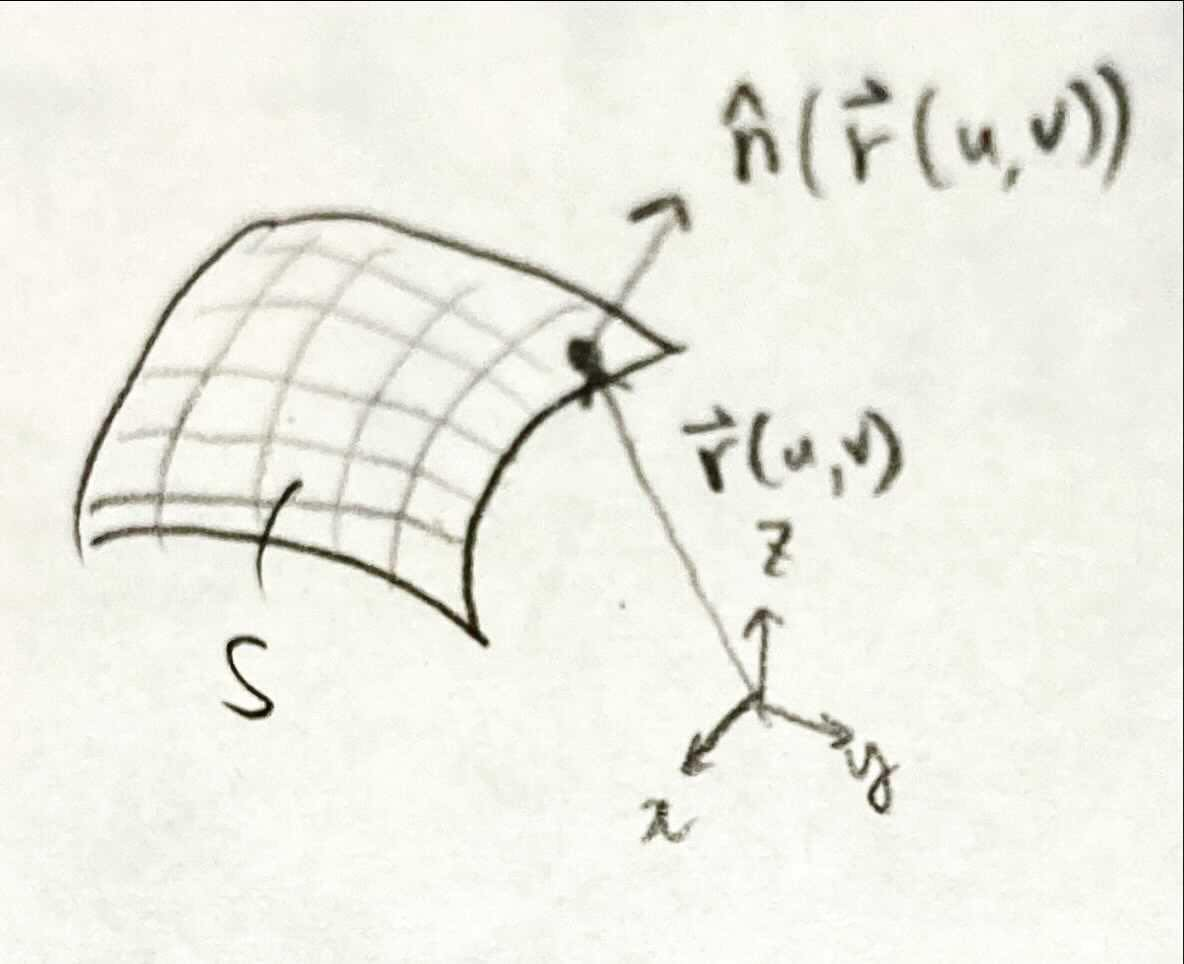 n̂(r⃗(u,v))
r⃗(u,v)
z
S
y
x